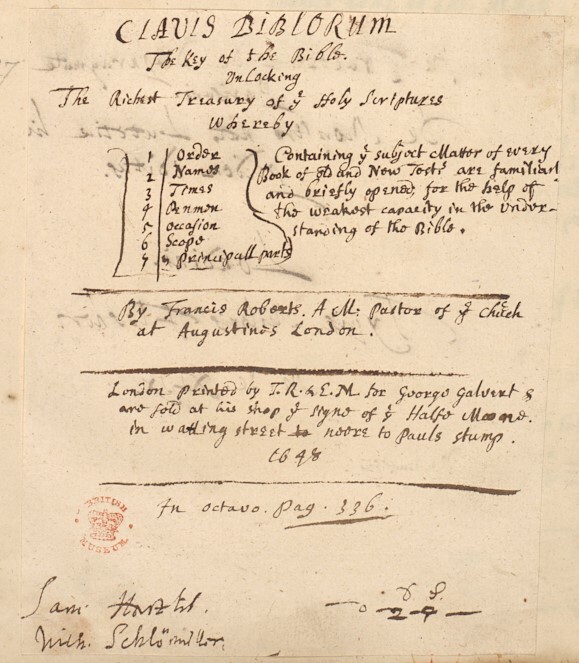 CLAVIS BIBLORUM
The Key of the Bible.
Unlocking
The Richest Treasury of yᵉ Holy Scriptures
Whereby
1 Order
2 Names
3 Times
4 Penmen
5 Occasion
6 Scope
7 Principall parts
Containing yᵉ subject Matter of every
Book of old and New Testᵗ are familiarl
and briefly opened, for the help of
the weakest capacity in the Under-
standing of the Bible.
By Francis Roberts. A M: Pastor of yᵉ Chuch
at Augustines London.
London printed by T.R. & E.M. for George Galvert &
are sold at his shop yᵉ signe of yᵉ Halfe Moone.
in watling street neere to Pauls stump.
1648
In octavo. Pag. 336.
BRITISH MUSEUM
Sam: Hartlib.